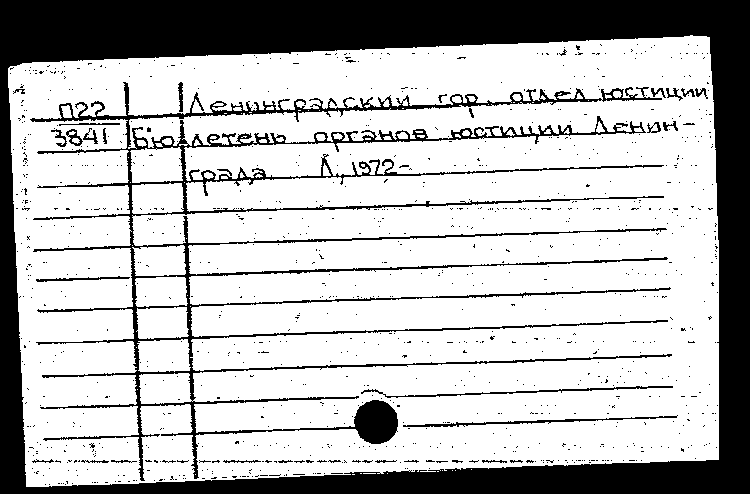 П22 Ленинградский гор. отдел юстиции
3841 Бюллетень органов юстиции Ленин-
града. Л., 1972-